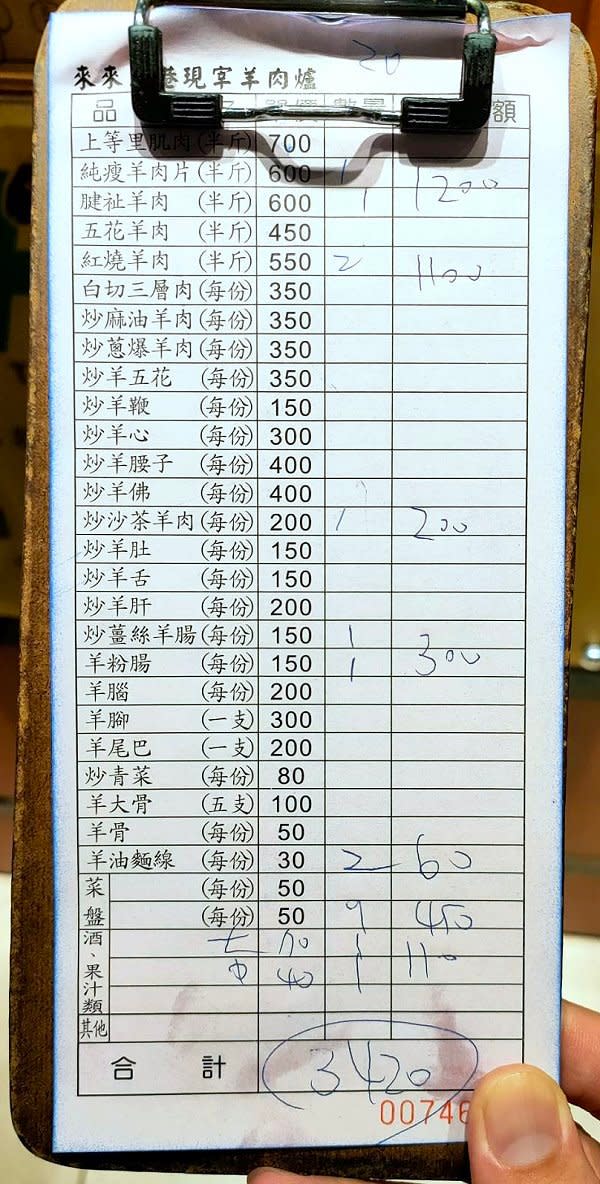 20
來來 港現宰羊肉爐
品 額
上等里肌肉(半斤) 700
純瘦羊肉片(半斤) 600 1
腱祉羊肉 (半斤) 600 1 1200
五花羊肉 (半斤) 450
紅燒羊肉 (半斤) 550 2 1100
白切三層肉(每份) 350
炒麻油羊肉(每份) 350
炒蔥爆羊肉(每份) 350
炒羊五花 (每份) 350
炒羊鞭 (每份) 150
炒羊心 (每份) 300
炒羊腰子 (每份) 400
炒羊佛 (每份) 400
炒沙茶羊肉(每份) 200 1 200
炒羊肚 (每份) 150
炒羊舌 (每份) 150
炒羊肝 (每份) 200
炒薑絲羊腸(每份) 150 1
羊粉腸 (每份) 150 1 300
羊腦 (每份) 200
羊腳 (一支) 300
羊尾巴 (一支) 200
炒青菜 (每份) 80
羊大骨 (五支) 100
羊骨 (每份) 50
羊油麵線 (每份) 30 2 60
菜盤 (每份) 50
(每份) 50 9 450
酒、果汁類 70 1
中 40 1 110
其他
合計 3420
00746